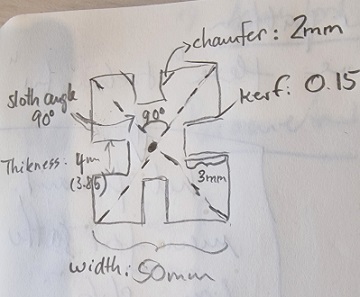 chamfer: 2mm
sloth angle
90°
90°
kerf: 0.15
Thikness: 4m
(3.85)
3mm
width: 50mm